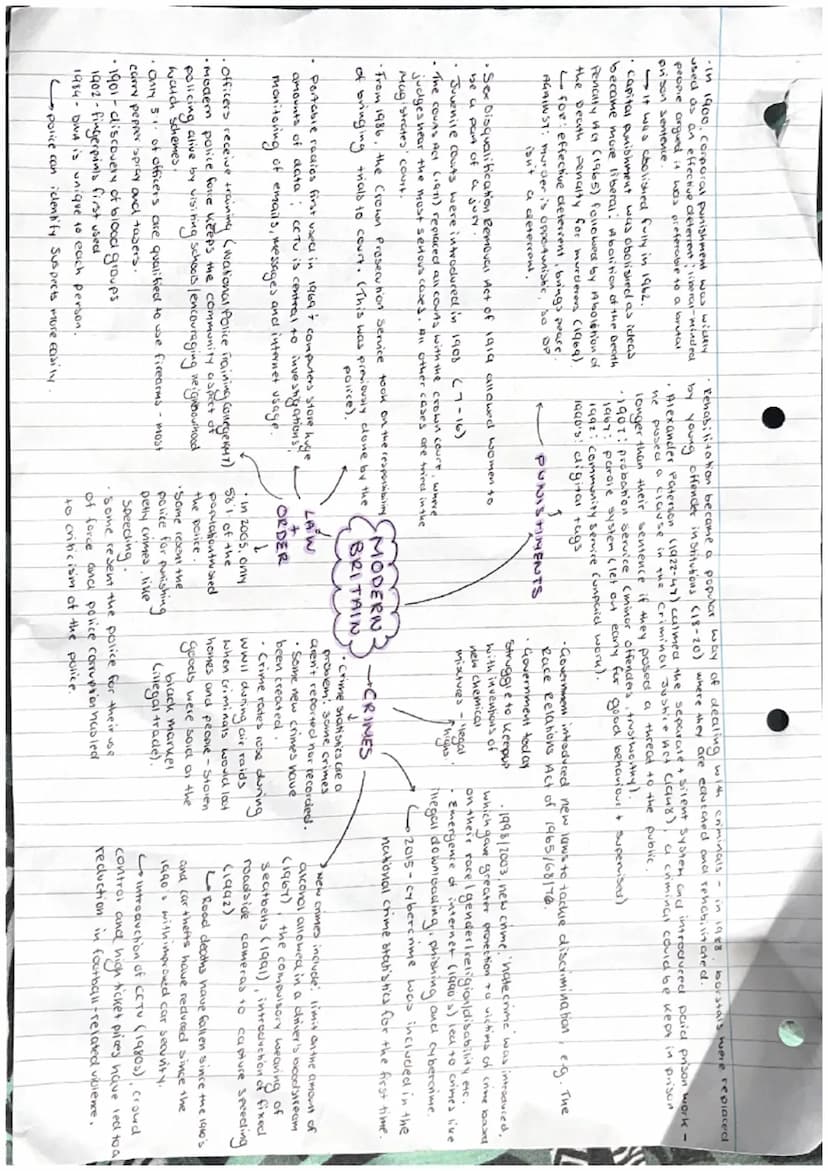 • In 1900, corporal punishment was widely
used as an effective deterrent; liberal-minded
people argued it was preferable to a brutal
prison sentence.
↳ It was abolished fully in 1962.
• Capital punishment was abolished as ideas
became more liberal. Abolition of the Death
Penalty Act (1965) followed by Abolition of
the Death Penalty for murderers (1969).
↳ for: effective deterrent, brings peace.
Against: murder is opportunistic, so DP
isn't a deterrent.
• Rehabilitation became a popular way of dealing with criminals - in 1988, borstals were replaced
by young offender institutions (18-20) where they are educated and rehabilitated.
• Alexander Paterson (1922-47) calmed the separate + silent system and introduced paid prison work -
he posed a clause in the Criminal Justice Act (1948), a criminal could be kept in prison
longer than their sentence if they posed a threat to the public.
• 1907: probation service (minor offenders, trustworthy).
1967: parole system (let out early for good behaviour + supervised)
1992: community service (unpaid work).
1990s: digital tags
PUNISHMENTS
• Sex Disqualification Removal Act of 1919 allowed women to
be a part of a jury.
• Juvenile courts were introduced in 1908 (7-16)
• The Courts Act (1971) replaced all courts with the crown court, where
judges hear the most serious cases. All other cases are tried in the
magistrates court.
• From 1986, the Crown Prosecution Service took on the responsibility
of bringing trials to court. (This was previously done by the
police).
• Portable radios first used in 1969 + computers store huge
amounts of data; CCTV is central to investigations;
monitoring of emails, messages and internet usage.
• Officers receive training (National Police Training College 1947)
• Modern police force keeps the community aspect of
policing alive by visiting schools/encouraging neighbourhood
watch schemes.
• Only 5% of officers are qualified to use firearms - most
carry pepper spray and tasers.
• 1901 - discovery of blood groups
1902 - fingerprints first used
1984 - DNA is unique to each person.
↳ police can identify suspects more easily.
MODERN
BRITAIN
LAW
+
ORDER
• In 2005, only
58% of the
population trusted
the police.
• Some resent the
police for punishing
petty crimes, like
speeding.
• Some resent the police for their use
of force and police corruption has led
to criticism of the police.
CRIMES
• Government introduced new laws to tackle discrimination, e.g. The
Race Relations Act of 1965/68/76.
• Government today
struggle to keep up
with inventions of
new chemical
mixtures
illegal
highs.
• 1998/2003, new crime 'hate crime' was introduced,
which gave greater protection to victims of crime based
on their race/gender/religion/disability etc.
• Emergence of internet (1990's) led to crimes like
illegal downloading, phishing and cybercrime.
↳ 2015 - cybercrime was included in the
national crime statistics for the first time.
• Crime statistics are a
problem; some crimes
aren't reported nor recorded.
• Some new crimes have
been created.
• Crime rates rose during
WWII during air raids
when criminals would loot
homes and people - stolen
goods were sold at the
black market
(illegal trade).
• New crimes include: limit on the amount of
alcohol allowed in a driver's bloodstream
(1967), the compulsory wearing of
seatbelts (1991), introduction of fixed
roadside cameras to capture speeding
(1992)
↳ Road deaths have fallen since the 1940's
and car thefts have reduced since the
1990's with improved car security.
↳ Introduction of CCTV (1980s), crowd
control and high ticket prices have led to a
reduction in football-related violence.